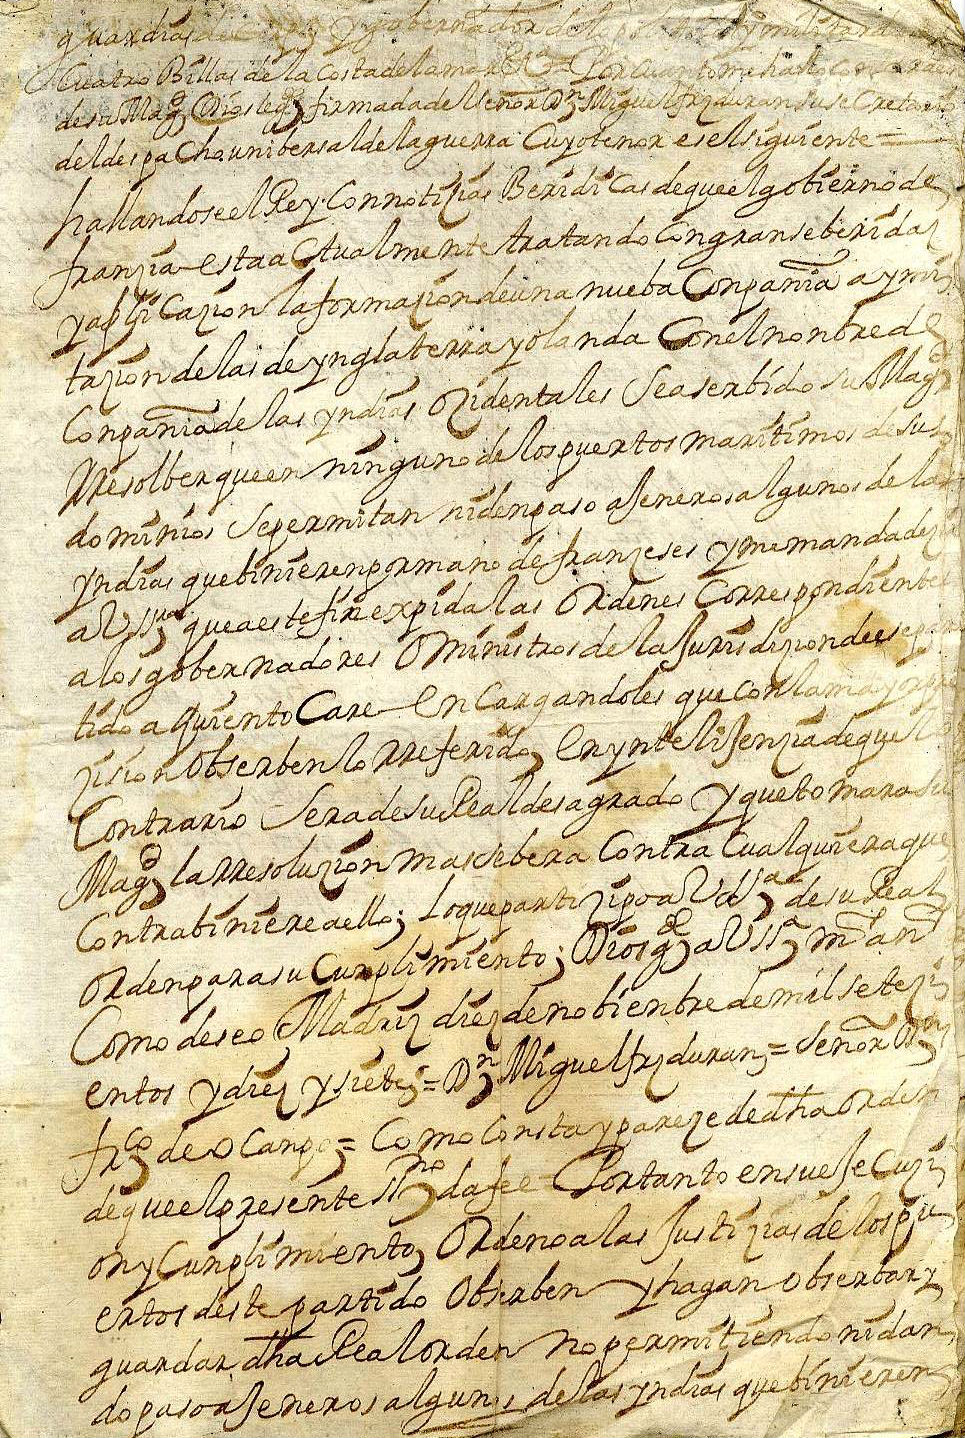 guardias de Corps y gobernador de lo politico y militar de
Cuatro Billas de la Costa de la mar &ª = Por cuanto me hallo con
de su Magd Dios le gde firmada del señor Dn Miguel frz duran su secretario
del despacho unibersal de la guerra Cuyo tenor es el siguiente =
hallandose el Rey Con notizias Beridicas de que el gobierno de
franzia esta actualmente tratando Con gran seberidaz
y aplicazion la formazion de una nueba Conpañia a ymi
tazion de las de ynglaterra y olanda Con el nonbre de
Conpañia de las yndias ozidentales Se a serbido su Magd
Rresolber que en ninguno de los puertos maritimos de sus
dominios Se permitan ni den paso a Jeneros algunos de las
yndias que binieren por mano de franzeses y me manda dezir
a VSSª que a este fin expida las Ordenes Correspondientes
a los gobernadores O ministros de la Jurisdizion de ese
tido a quien toCare En Cargandoles que con la mayor
zision Obserben lo Rreferido, En ynteliJenzia de que lo
Contrario Sera de su Real desagrado y que tomara su
Magd la rresoluzion mas sebera Contra Cualquiera que
Contrabiniere a ello; Lo que partizipo a VSSª de su Real
Orden para su Cunplimiento; Dios gde a VSSª ms an
Como deseo Madriz diez de nobienbre de mil setezi
entos y diez y siete = Dn Miguel frz duran = Señor Dn
frco de OCanpo = Como Consta y pareze de dha orden
de que el presente ssno da fee = Por tanto en su eJeCuzi
on y Cunplimiento, Ordeno a las Justizias de los pu
ertos deste partido Obserben y hagan Obserbar y
guardar dha Real orden no permitiendo ni dan
do paso a Jeneros algunos de las yndias que binieren